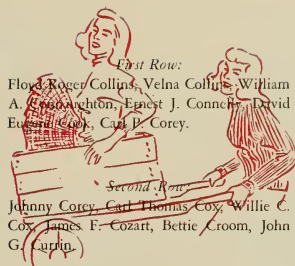 First Row:
Floyd Roger Collins, Velna Collins, William
A. Connaughton, Ernest J. Connelly, David
Eugene Cook, Carl P. Corey.
Second Row:
Johnny Corey, Carl Thomas Cox, Willie C.
Cox, James F. Cozart, Bettie Croom, John
G. Currin.